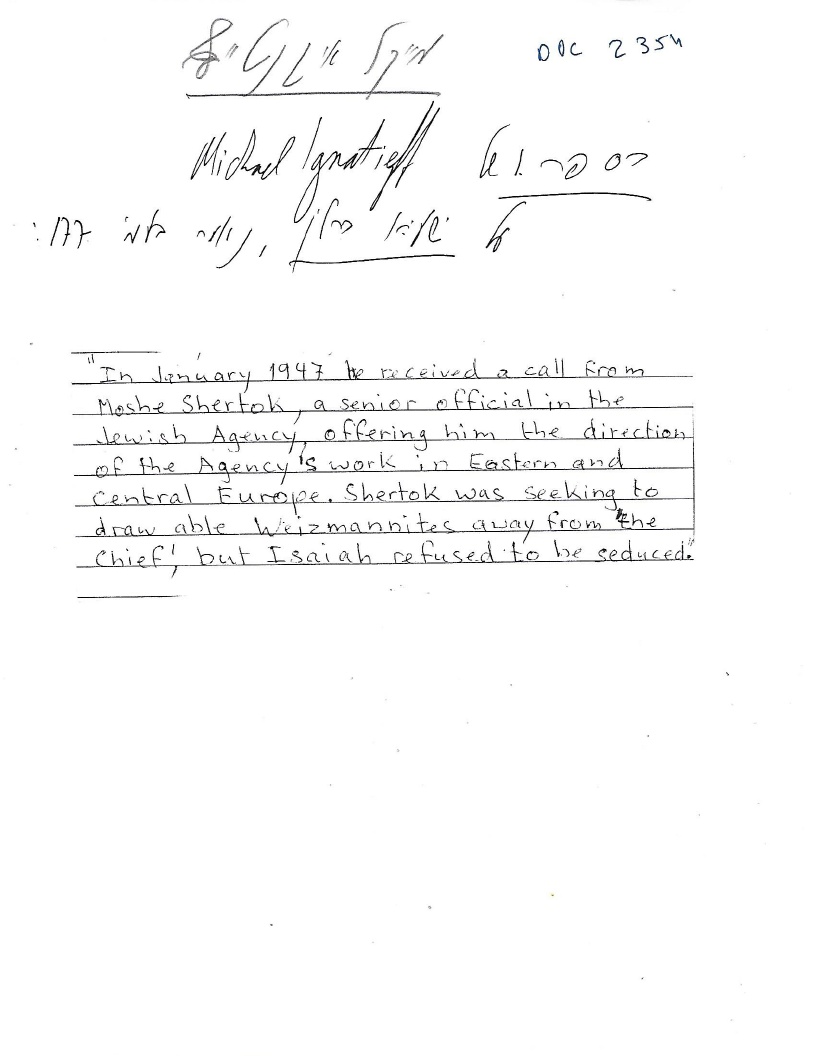 DOC 2354
מיקל
Michael Ignatieff בספרו של
על ישעיה ברלין, נאמר בעמ' 177:
"In January 1947 he received a call from
Moshe Shertok, a senior official in the
Jewish Agency, offering him the direction
of the Agency's work in Eastern and
Central Europe. Shertok was seeking to
draw able Weizmannites away from 'the
Chief', but Isaiah refused to be seduced."